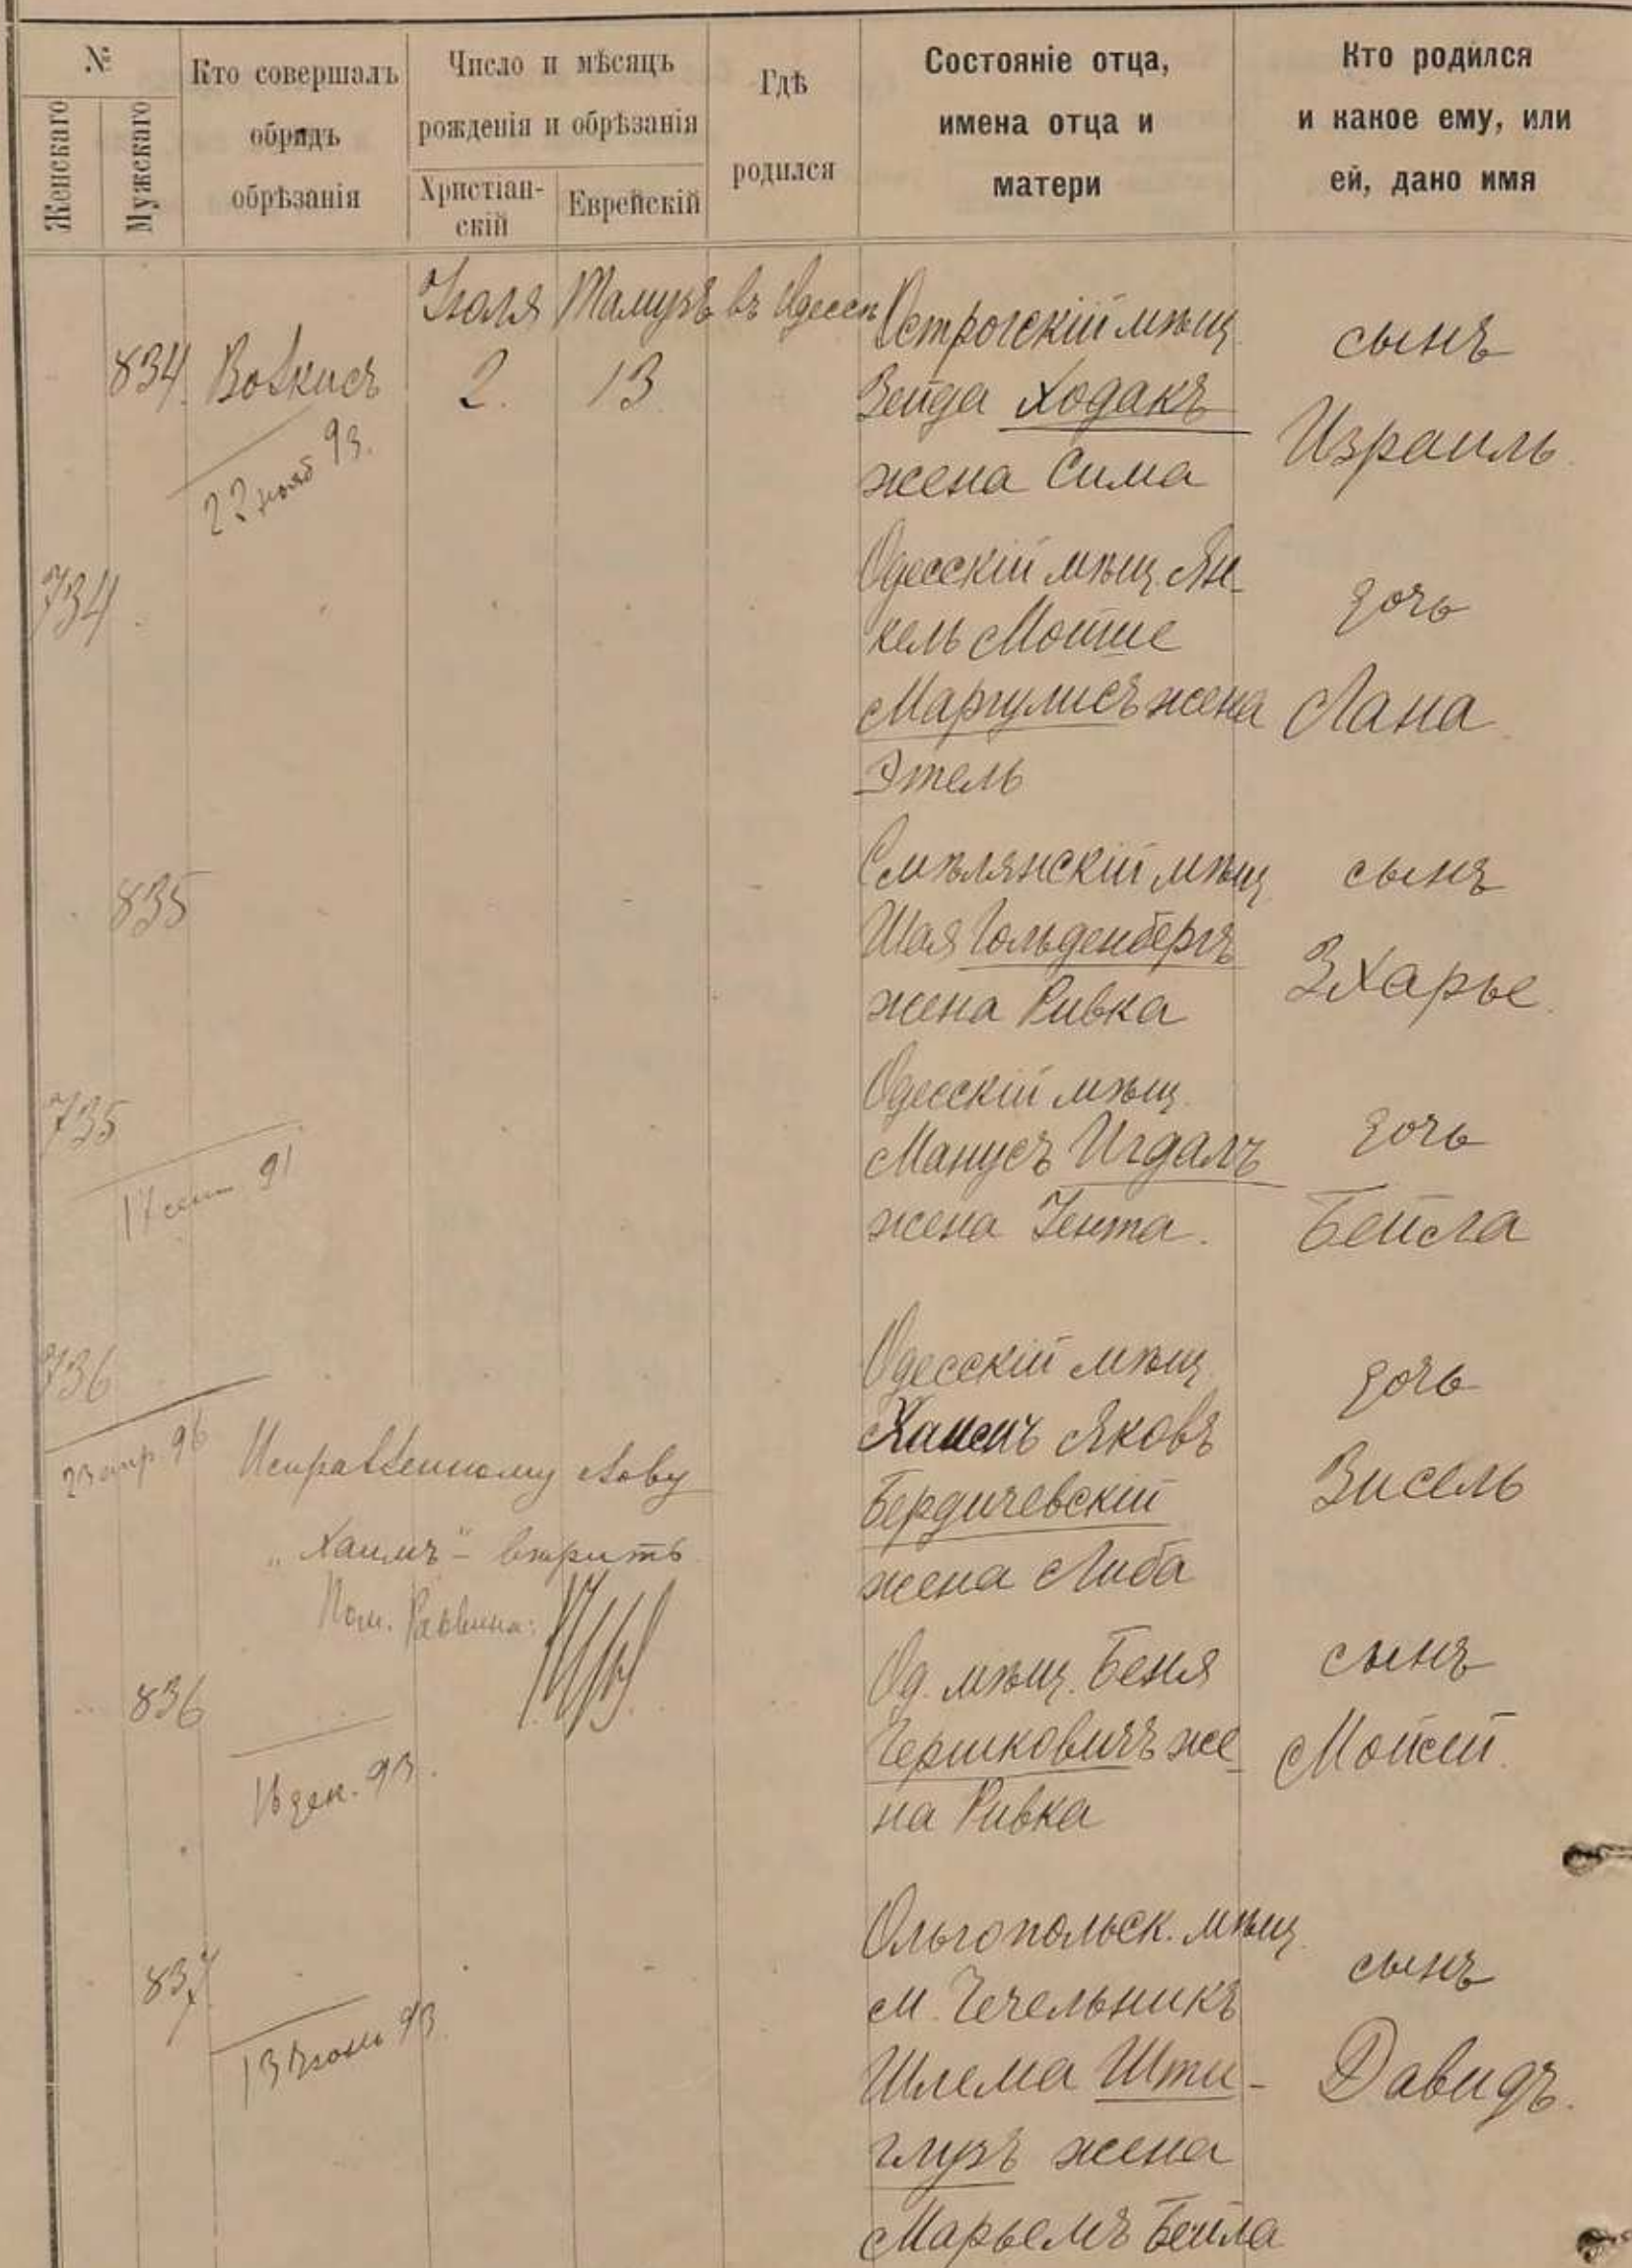 №
Женскаго
Мужскаго
Кто совершалъ
обрядъ
обрѣзанія
Число и мѣсяцъ
рожденія и обрѣзанія
Христіан-
скій
Еврейскій
Гдѣ
родился
Состояніе отца,
имена отца и
матери
Кто родился
и какое ему, или
ей, дано имя
Іюля
Тамузъ
въ Одессѣ
834.
2.
13
22 нояб 93.
Острогскій мѣщ.
Зейда Ходакъ
жена Сима
сынъ
Израиль.
734
Одесскій мѣщ. Ян-
кель Мойше
Маргулисъ жена
Этель
дочь
Лана
835
Смѣлянскій мѣщ.
Шая Гольденбергъ
жена Ривка
сынъ
Зхарье.
735
17 сент. 91
Одесскій мѣщ.
Манусъ Игдалъ
жена Іента.
дочь
Бейла
736
23 апр. 96
Исправленному слову
„Хаимъ“ - вѣрить
Пом. Раввина:
Одесскій мѣщ.
Хаимъ Яковъ
Бердичевскій
жена Либа
дочь
Зисель
836
16 дек. 93.
Од. мѣщ. Беня
Гершковичъ же-
на Ривка
сынъ
Мойсей.
837
93.
Ольгопольск. мѣщ.
м. Чечельникъ
Шлема Шти-
глузъ жена
Марьемъ Бейла
сынъ
Давидъ.